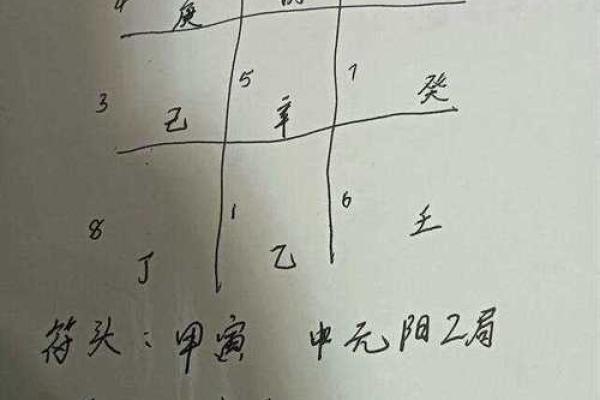 4 庚
3 己 5 辛 7 癸
8 丁 1 乙 6 壬
符头：甲寅 中元阳2局